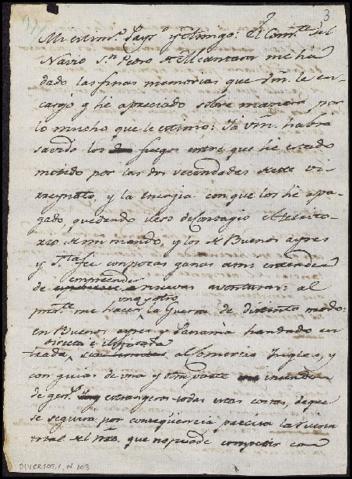 3
Mi estim.º Pays.º y Amigo: El Com.te del
Navio S.n Pedro Alcantara me ha
dado las finas memorias que Vm. le en-
cargó y he apreciado sobre manera por
lo mucho que le estimo: Ya Vm. habrá
savido los fuegos entre que he estado
metido por las dos vecindades de este vi-
rreynato, y la energia con que los he apa-
gado, quedando libre de contagio el territo-
rio de mi mando, y los de Buenos ayres
y Santa fee con pocas ganas a mi entender
de emprender nuevas aventuras: al
pres.te me hacen una y otro la Guerra de distinto modo:
en Buenos ayres y Panamá han dado en-
trada, directa é ilimitada al Comercio Ingles, y
con guias de una y otra parte
de gen.s extrangeros todas estas costas, de que
se seguirá por consequencia precisa la ruina
total del nro. que no puede competir con
DIVERSOS, 1, N. 103